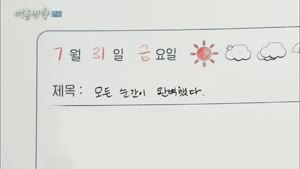 여름방학
7월 31일 금요일
제목: 모든 순간이 완벽했다.